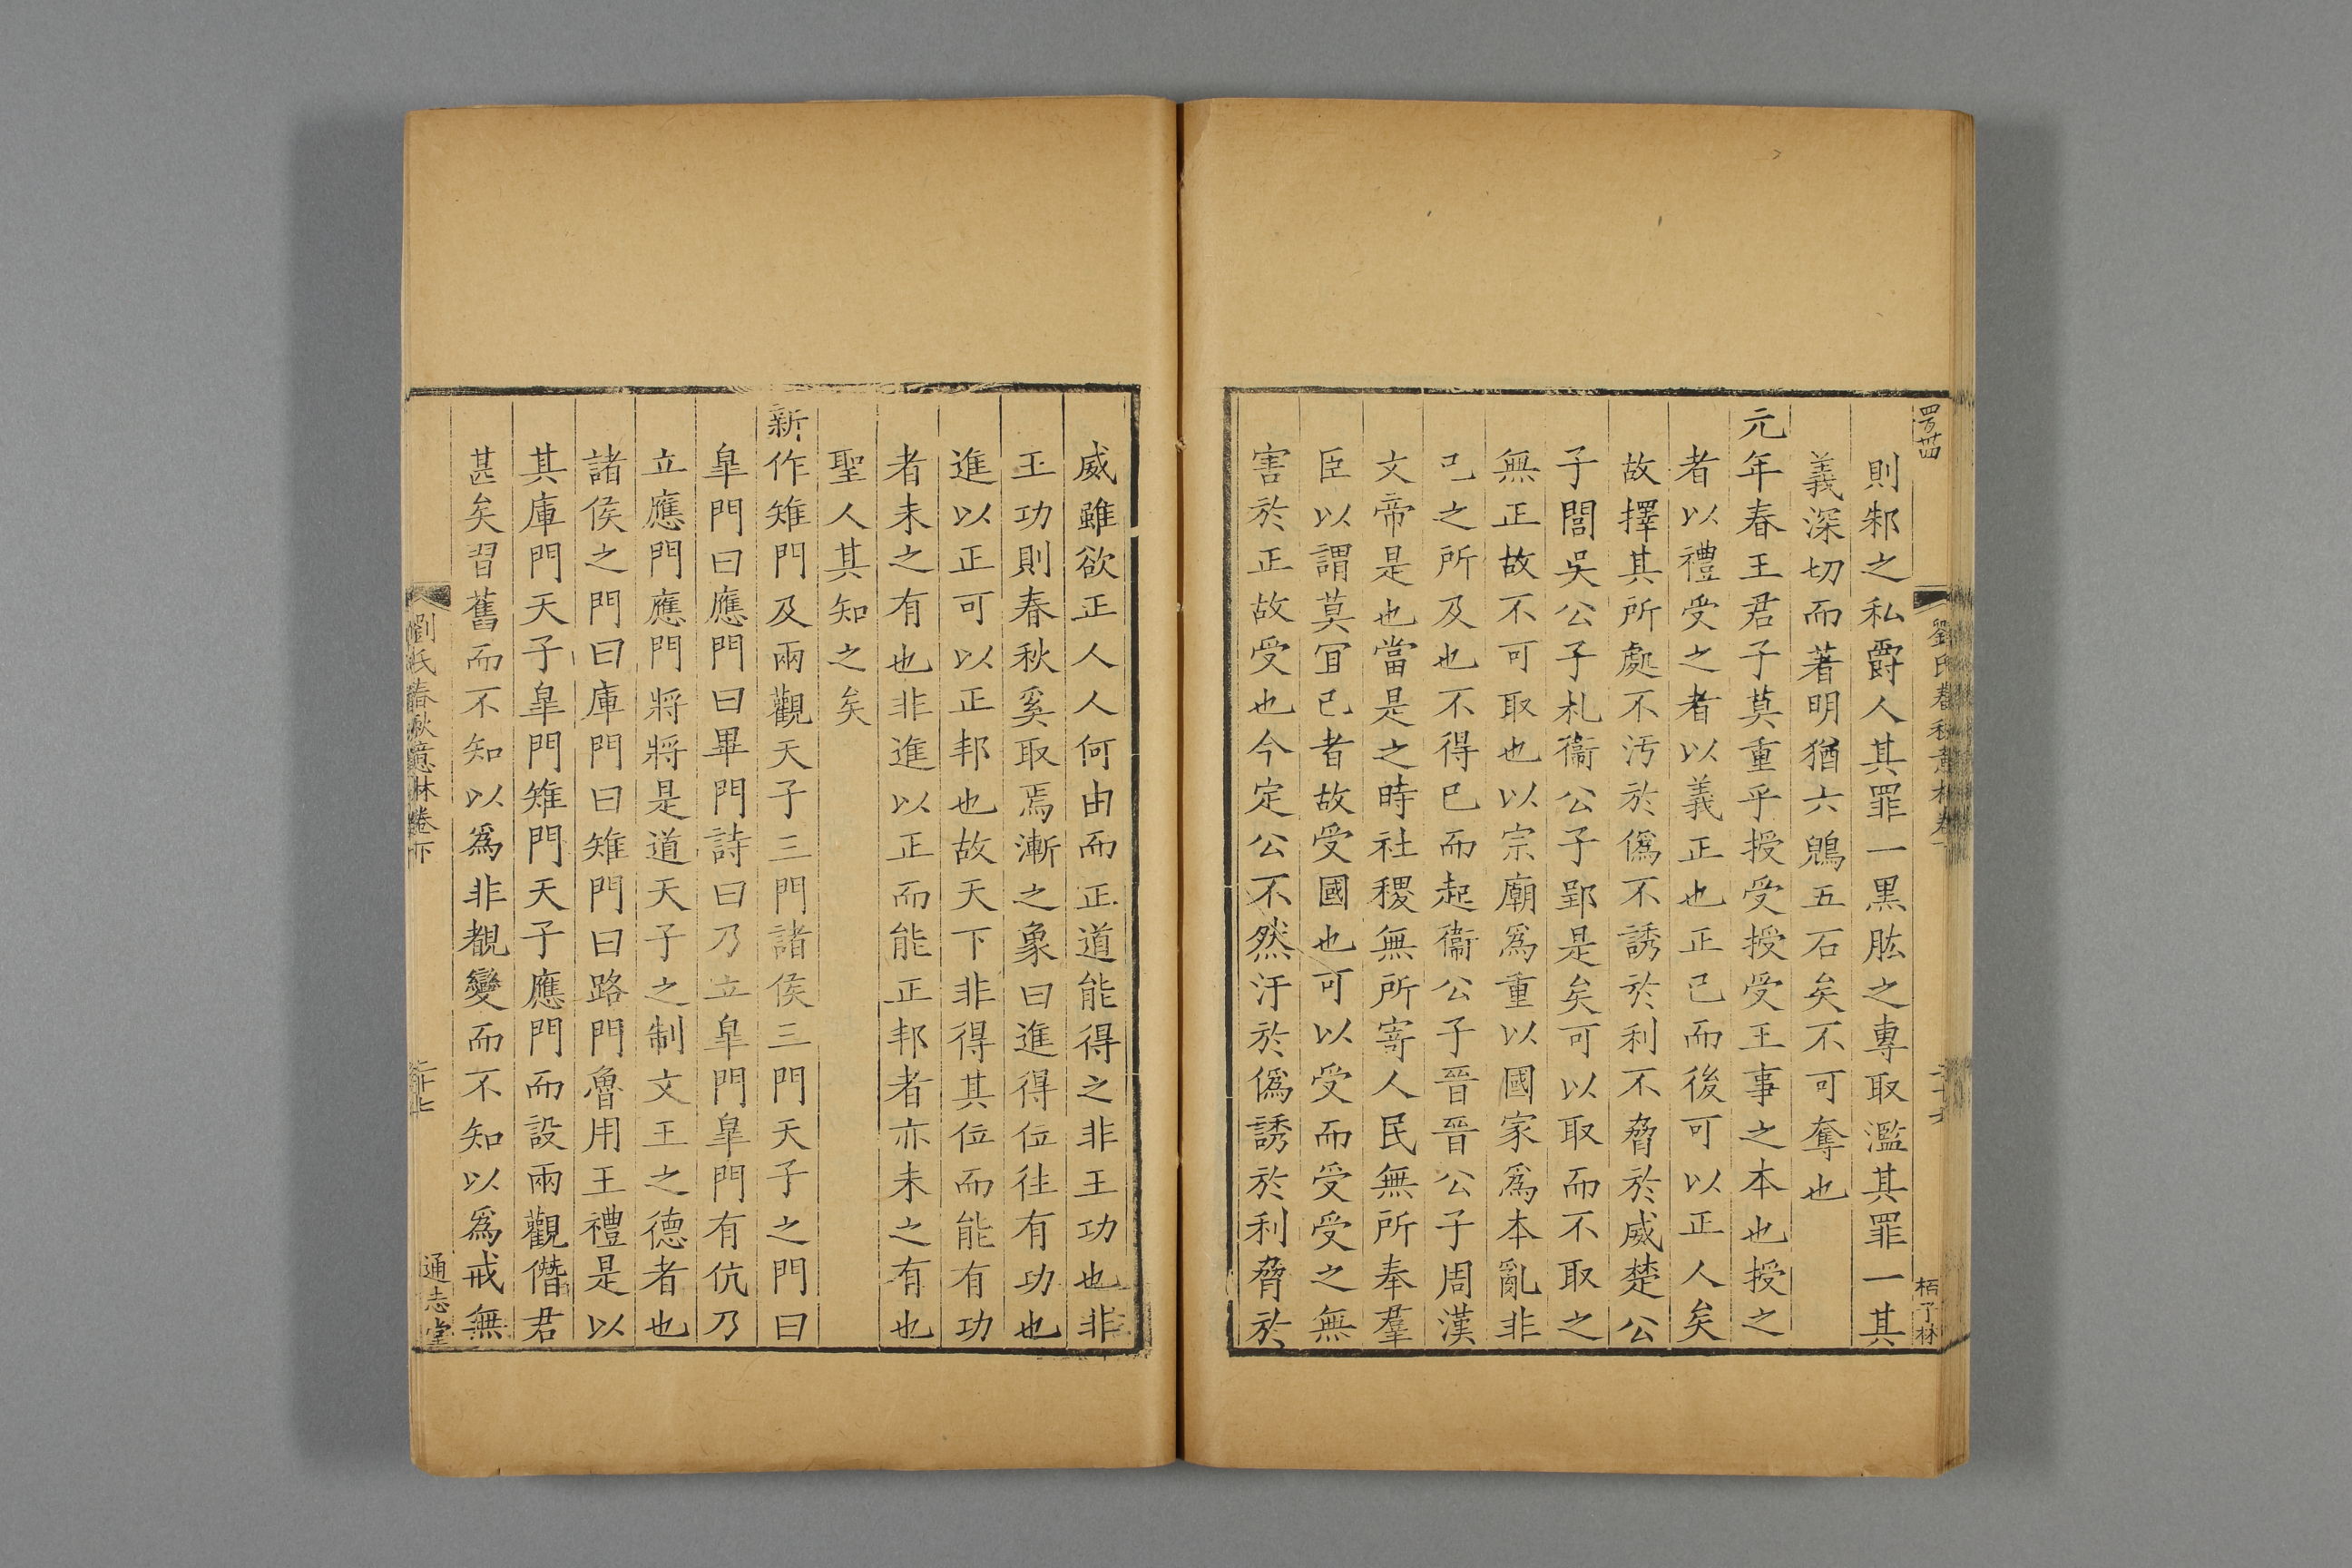 則邾之私爵人其罪一黑肱之專取濫其罪一其
義深切而著明猶六鶂五石矣不可奪也
元年春王君子莫重乎授受授受王事之本也授之
者以禮受之者以義正也正已而後可以正人矣
故擇其所處不汚於僞不誘於利不脅於威楚公
子閭吳公子札衞公子郢是矣可以取而不取之
無正故不可取也以宗廟爲重以國家爲本亂非
已之所及也不得已而起衞公子晉晉公子周漢
文帝是也當是之時社稷無所寄人民無所奉羣
臣以謂莫宜已者故受國也可以受而受受之無
害於正故受也今定公不然汙於僞誘於利脅於
威雖欲正人人何由而正道能得之非王功也非
王功則春秋奚取焉漸之象曰進得位往有功也
進以正可以正邦也故天下非得其位而能有功
者未之有也非進以正而能正邦者亦未之有也
聖人其知之矣
新作雉門及兩觀天子三門諸侯三門天子之門曰
皐門曰應門曰畢門詩曰乃立皐門皐門有伉乃
立應門應門將將是道天子之制文王之德者也
諸侯之門曰庫門曰雉門曰路門魯用王禮是以
其庫門天子皐門雉門天子應門而設兩觀僭君
甚矣習舊而不知以爲非覩變而不知以爲戒無
劉氏春秋意林卷下
二十七
通志堂